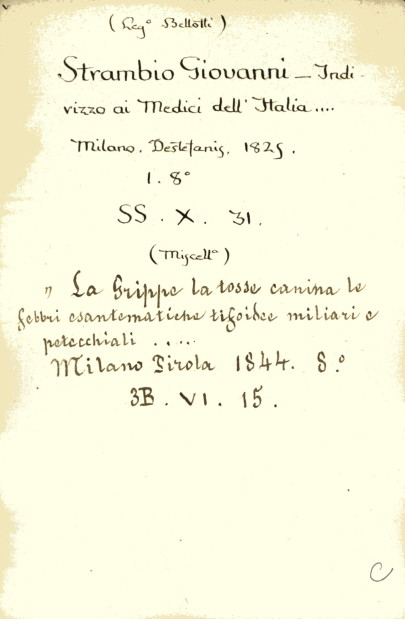 (Leg° Bellotti)
Strambio Giovanni — Indi-
rizzo ai Medici dell'Italia....
Milano. Destefanis. 1825.
1. 8°
SS. X. 31.
(Miscellª)
" La Grippe la tosse canina le
febbri esantematiche tifoidee miliari e
petecchiali .....
Milano Pirola 1844. 8.°
3B. VI. 15.
C